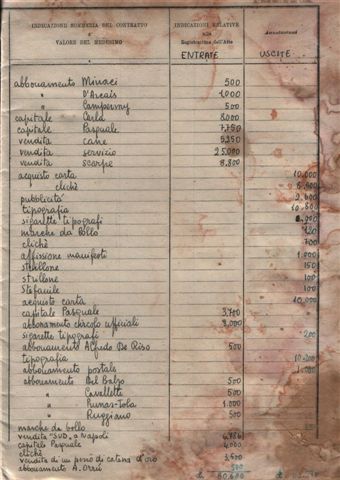 INDICAZIONE SOMMARIA DEL CONTRATTO INDICAZIONI RELATIVE Annotazioni
e alla
VALORE DEL MEDESIMO Registrazione dell'Atto
ENTRATE USCITE
abbonamento Minaci 500
" D'Arcais 1.000
" 500
capitale Carla 8.000
capitale Pasquale 7.750
vendita cane
vendita servizio 25.000
vendita scarpe 8.800
acquisto carta 10.000
clichè
pubblicità
tipografia
sigarette tipografi
marche da bollo 120
clichè 700
affissione manifesti 1.000
strillone 150
strillone 100
Stefanile 100
acquisto carta 10.000
capitale Pasquale
abbonamento circolo ufficiali
sigarette tipografi 200
abbonamento Alfredo De Riso 500
tipografia
abbonamento postale
abbonamento Del Balzo 500
" Cavallette 500
" 1.000
" Ruggiano 500
marche da bollo
vendita "SUD" a Napoli
capitale Pasquale
clichè
vendita di un pezzo di catena d'oro
abbonamento A. Orrù 500